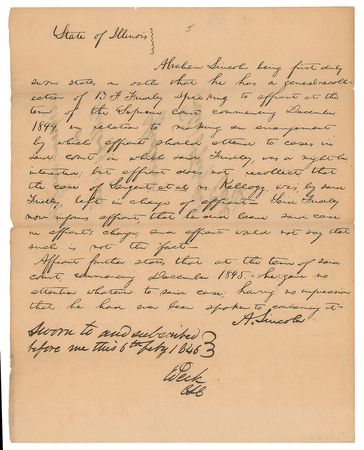 State of Illinois
Abraham Lincoln being first duly
sworn states on oath that he has a general recoll-
ection of B. F. Fridley speaking to affiant at the
term of the Supreme court, commencing December
1844, in relation to making an arrangement
by which affiant should attend to cases in
said court, in which said Fridley, was or might be
interested; but affiant does not recollect that
the case of Sargent et al vs. Kellogg, was, by said
Fridley, left in charge of affiant - Said Fridley
now informs affiant that he did leave said case
in affiant's charge, and affiant would not say that
such is not the fact -
Affiant further states that at the term of said
court, commencing December 1845 - he gave no
attention whatever to said case, having no impression
that he had ever been spoken to concerning it -
A. Lincoln
Sworn to and subscribed
before me this 6th Feby 1846
E Peck
Clk